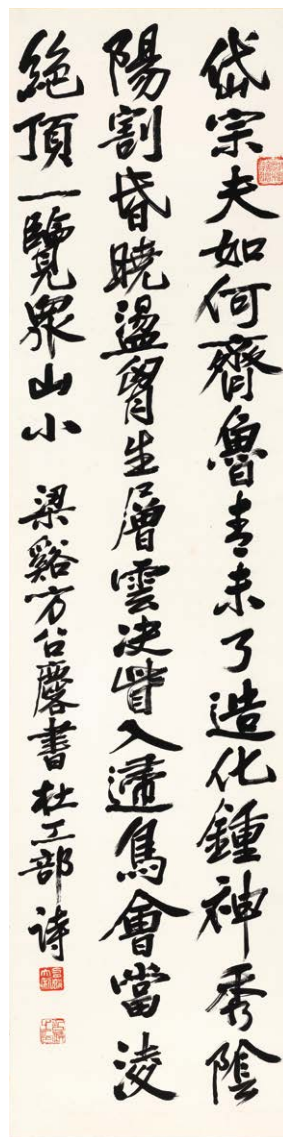 岱宗夫如何齊魯青未了造化鍾神秀陰
陽割昏曉盪胷生層雲決眥入歸鳥會當淩
絕頂一覽眾山小 梁谿方召麐書杜工部詩